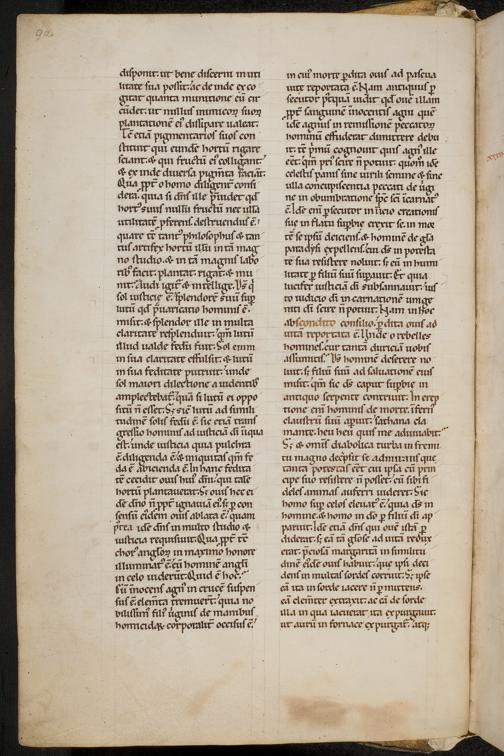 92
disponit. ut bene discerni in uti
litate sua possit. ac de inde exco
gitat quanta munitione eū cir
cūdet. ut nullus inimicorū suorū
plantationē ei dissipare valeat.
Tc̄ etiā pigmentarios suos con
stituit qui eundē hortū rigare
sciant. & qui fructū ei colligant.
& ex inde diversa pigm̄ta faciāt.
Qua ppt̄ o homo diligent̄ consi
dera. quia si dn̄s ille p̄videt qd̄
hort̄ suus nullū fructū nec ullā
utilitatē p̄ferens. destruendus ē.
quare tc̄ tant̄ philosophus & tan
tus artifex hortū illū in tā mag
no studio. & in tā magno labo
rib̄ facit. plantat. rigat. & mu
nit. Audi igit̄ & intellige. Dš q̄
sol iusticie ē. splendorē suū sup̄
lutū qd̄ p̄varicatio hominis ē.
misit. & splendor ille in multa
claritate resplenduit. qm̄ lutū
illud valde fedū fuit. Sol enim
in sua claritate effulsit. & lutū
in sua feditate putruit. unde
sol maiori dilectione a videntib̄
amplectebat̄. quā si lutū ei oppo
situ n̄ esset. Sȝ sic̄ lutū ad simili
tudinē solis fedū ē. sic etiā trans
gressio hominis ad iusticiā di iniqua
est. unde iusticia quia pulchra
ē diligenda ē. & iniquitas qm̄ fe
da ē abicienda ē. In hanc fedita
tē cecidit ovis hui dn̄i. qui tale
hortū plantaverat. Sȝ ovis hec ei
dē dn̄o n̄ ppt̄ ignaviā ei. sȝ p con
sensū ei dem ovis ablata ē. quam
p̄tea idē dn̄s in multo studio &
iusticia requisivit. Qua ppt̄ tc̄
chor̄ anglorū in maximo honore
illuminat̄ ē. cū hominē angli
in celo viderūt. Quid ē hoc?
Cū innocens agn̄ in cruce suspen
sus ē. elem̄ta tremuer̄t. quia no
bilissim̄ fili v̄ginis de manibus
homicidarū corporalit̄ occisus ē.
in eui morte p̄dita ovis ad pascua
vite reportata ē. Nam antiquus p̄
secutor p̄tquā vidit qd̄ ovē illam
ppt̄ sanguinē innocentis agni quē
idē agnus in remissionē peccatorū
hominū effuderat dimittere debu
it. tc̄ p̄mū cognovit quis agn̄ ille
eet. qm̄ p̄ri scire n̄ potuit. quom̄ idē
celestis panis sine virili semine & sine
ulla concupiscentia peccati de v̄gi
ne in obumbratione sp̄c sc̄i incarnat̄
ē. Idē eni p̄secutor in inicio creationis
sue in flatu supbie erexit se. in mor
tē se ipsū deiciens. & hominē de gl̄a
paradysi expellens. cui ds̄ in potesta
te sua resistere noluit. sȝ eū in humi
litate p filiū suū supavit. Et quia
lucifer iusticiā di subsannavit. ius
to iudicio di in carnationē unige
niti di scire n̄ potuit. Nam in hoc
abscondito consilio. p̄dita ovis ad
vitā reportata ē. Unde o rebelles
homines. cur tantā duriciā vobis
assumitis? Ds̄ hominē deserere no
luit. sȝ filiū suū ad salvationē eius
misit. qm̄ sic ds̄ caput supbie in
antiquo serpente contrivit. In erep
tione eni hominis de morte. inferni
claustrū suū apuit. sathana cla
mante. heu heu quis me adiuvabit.
Sȝ & omnis diabolica turba in fremi
tu magno decepsit se admirans que
tanta potestas eet̄ cui ipsa cū prin
cipe suo resistere n̄ posset. cū sibi fi
deles animas auferri viderēt. Sic
homo sup̄ celos elevat̄ ē. quia ds̄ in
homine & homo in do p filiū di ap
paruit. Idē etiā dn̄s qui ovē istā p̄
diderat. sȝ eā tā gl̄ose ad vitā redux
erat. p̄ciosā margaritā in similitu
dinē eidē ovis habuit. que ipsi deci
dens in multas sordes corruit. Sȝ ipse
eā ita in sorde iacere n̄ p̄mittens.
eā clem̄t̄ extraxit. ac eā de sorde
illa in qua iacuerat ita expurgavit.
ut aurū in fornace expurgat̄. atqȝ